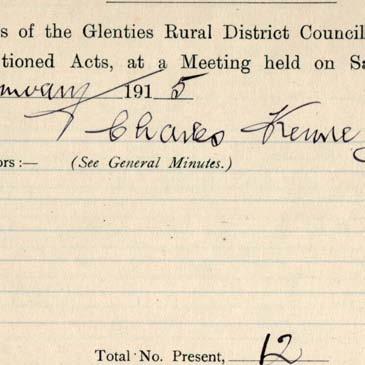 s of the Glenties Rural District Council
tioned Acts, at a Meeting held on Sa
nuary 1915
Charles Kenne
ors :— (See General Minutes.)
Total No. Present, 12